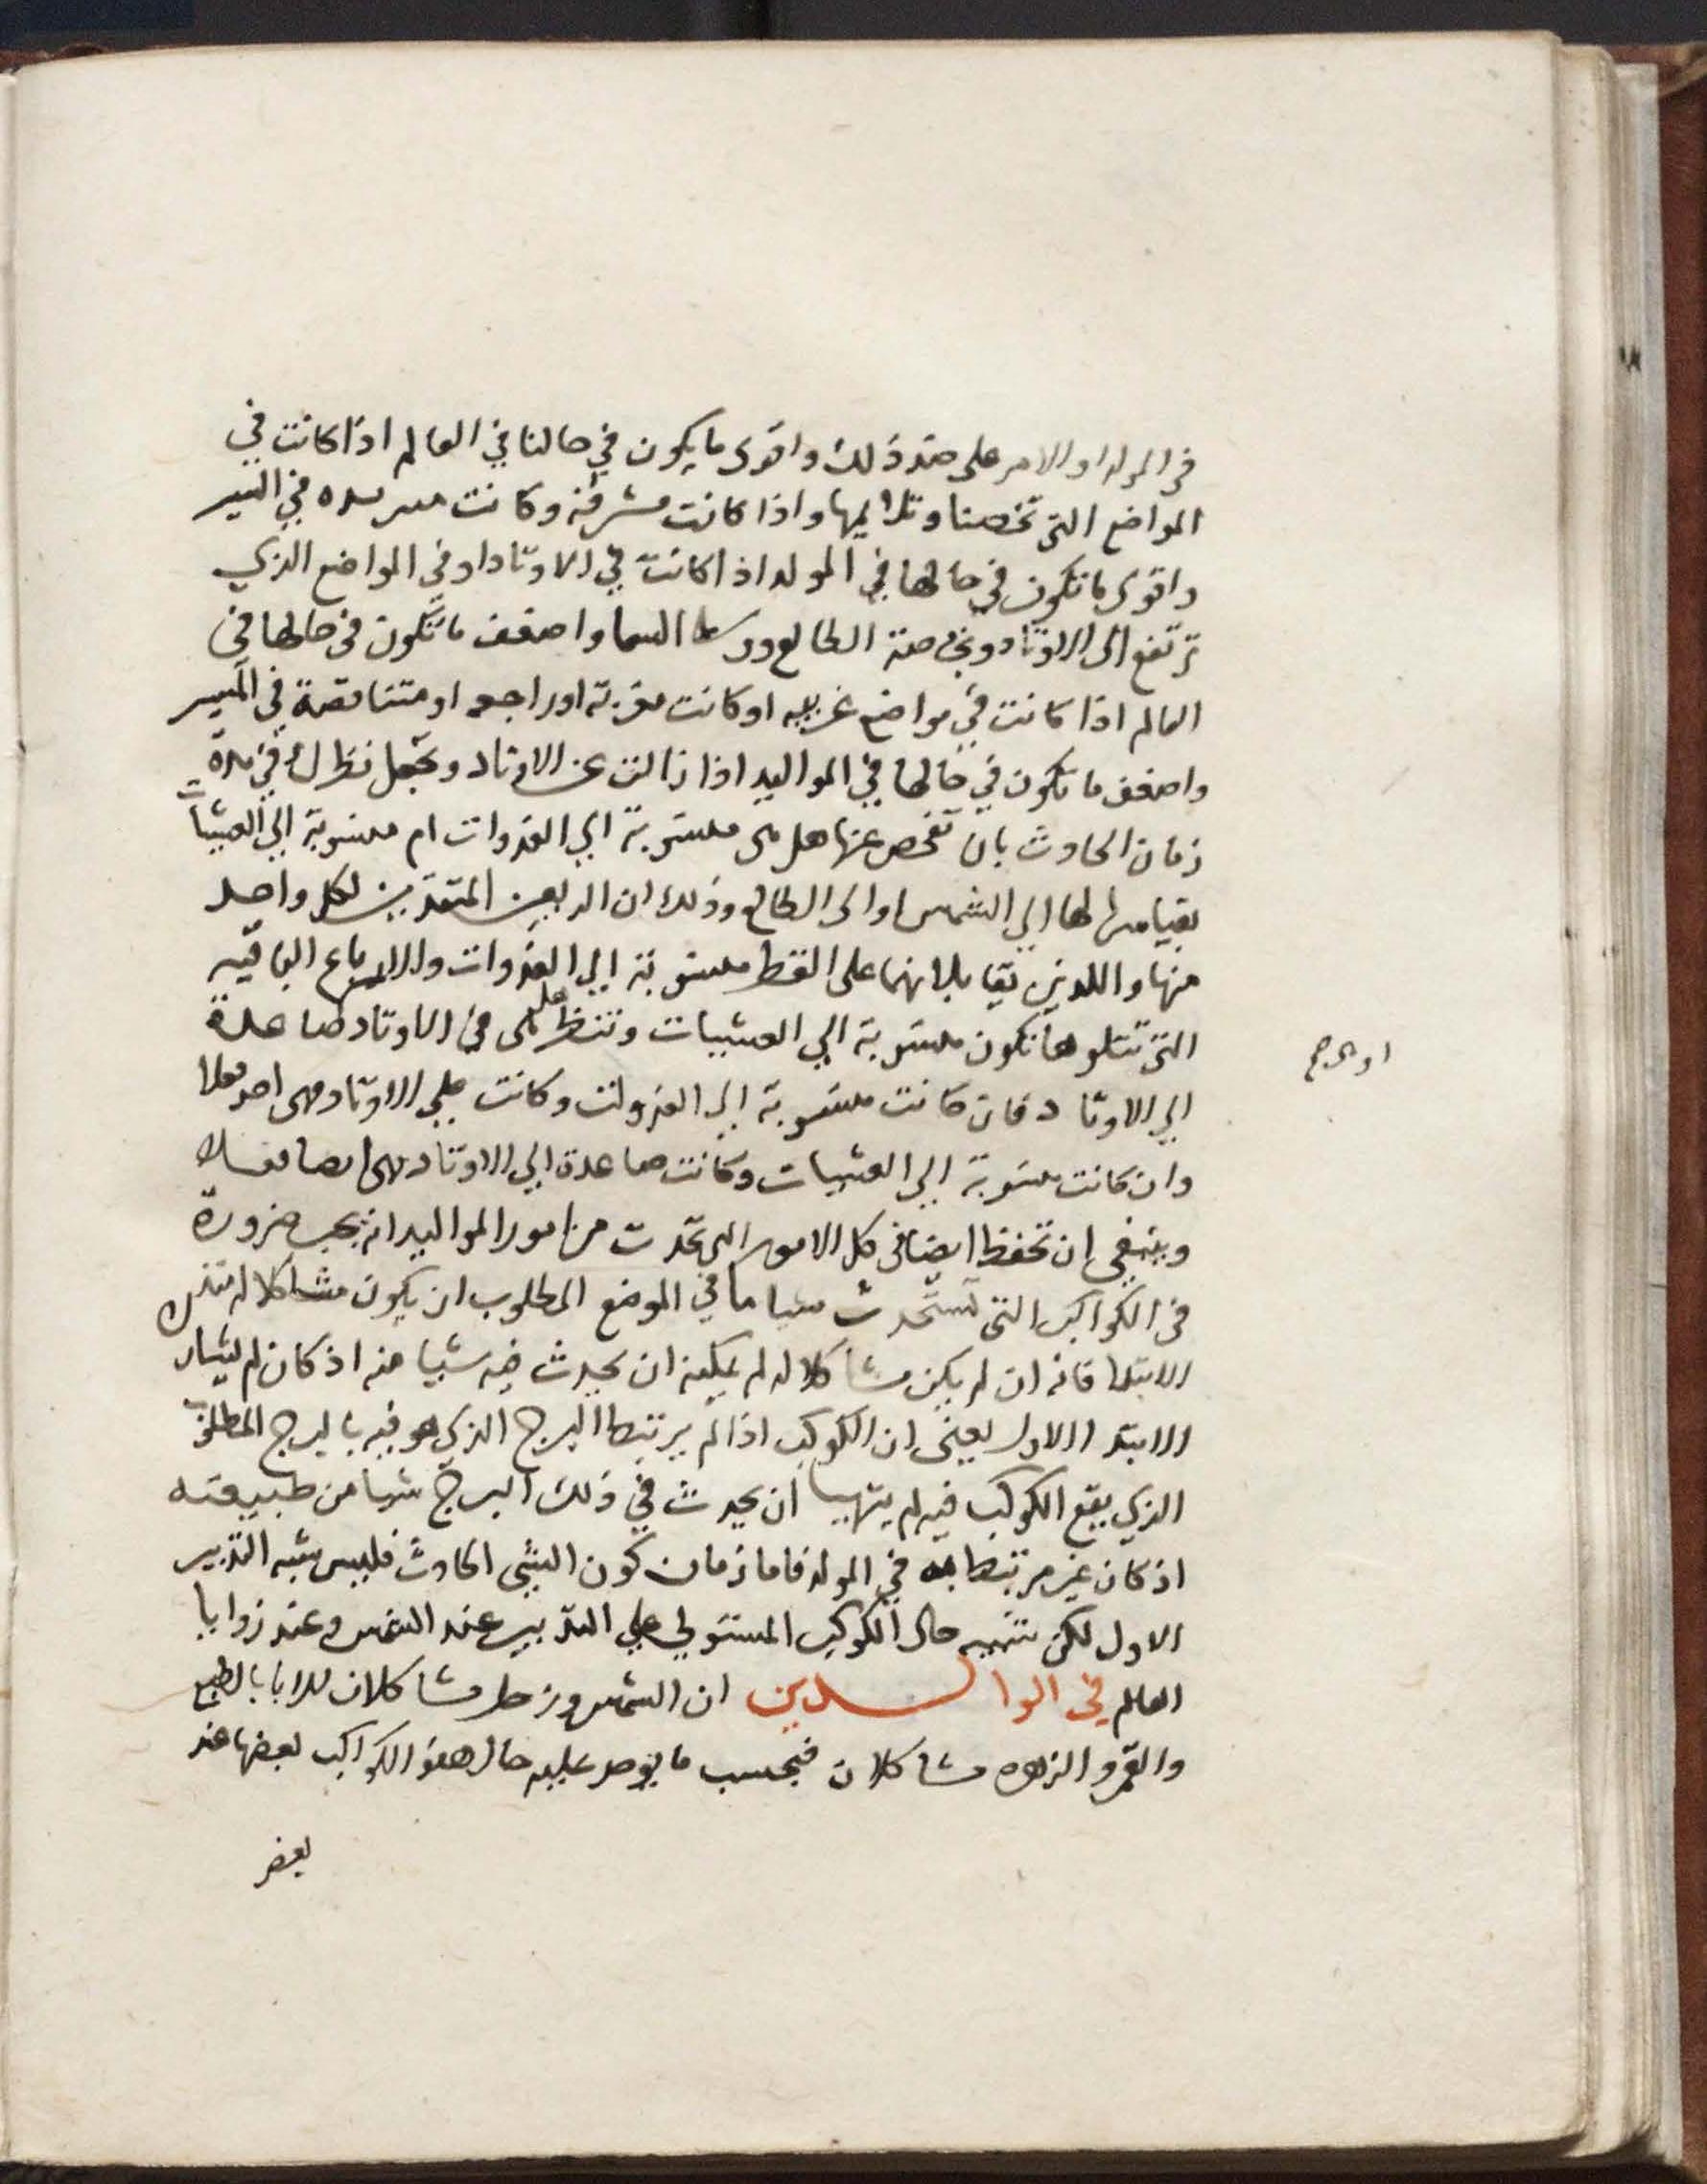 في المولد او الامر على ضد ذلك واقوى ما يكون في حالنا في العالم اذا كانت في
المواضع التي تخصنا وتلايمها واذا كانت مشرقة وكانت متزيده في السير
واقوى ما تكون في حالها في المولد اذا كانت في الاوتاد او في المواضع الذي
ترتفع الى الاوتاد وبخاصة الطالع ووسط السما واضعف ما تكون في حالها في
العالم اذا كانت في مواضع غريبه او كانت مغربة او راجعه او متناقصة في المسير
واضعف ما تكون في حالها في المواليد اذا زالت عن الاوتاد وتجعل نظرك في مدة
زمان الحادث بان تفحص عنها هل هي منسوبة الي الغدوات ام منسوبة الي العشيات
بقياسها لها الي الشمس او الى الطالع وذلك ان الربعين المتقدمين لكل واحد
منها واللذين يقابلانهما على القطر منسوبة الي الغدوات والارباع الباقيه
التي تتلوها تكون منسوبة الي العشيات وتنظر هل هي في الاوتاد صاعدة
الي الاوتاد فان كانت منسوبة الي الغدوات وكانت علي الاوتاد فهى اقوى فعلا
وان كانت منسوبة الي العشيات وكانت صاعدة الي الاوتاد فهى
وينبغي ان تحفظ ايضا في كل الامور التي تحدث من امور المواليد انه يجب ضرورة
في الكواكب التي تستحدث شيا ما في الموضع المطلوب ان يكون مشاكلا له منذ
الابتدا فانه ان لم يكن مشاكلا له لم يمكنه ان يحدث فيه شيا منه اذ كان لم يشارك
الابتدا الاول يعني ان الكوكب اذا لم يرتبط البرج الذي هو فيه بالبرج المطلوب
الذي يقع الكوكب فيه لم يتهيا ان يحدث في ذلك البرج شيا من طبيعته
اذ كان غير مرتبط به في المولد فاما زمان كون الشي الحادث فليس سببه التدبير
الاول لكن سببه حال الكوكب المستولي علي التدبير عند الشمس وعند زوايا
العالم في الوالدين ان الشمس وزحل مشاكلان للابا بالطبع
والقمر والزهره مشاكلان فبحسب ما يوجد عليه حال هذه الكواكب بعضها عند
بعض